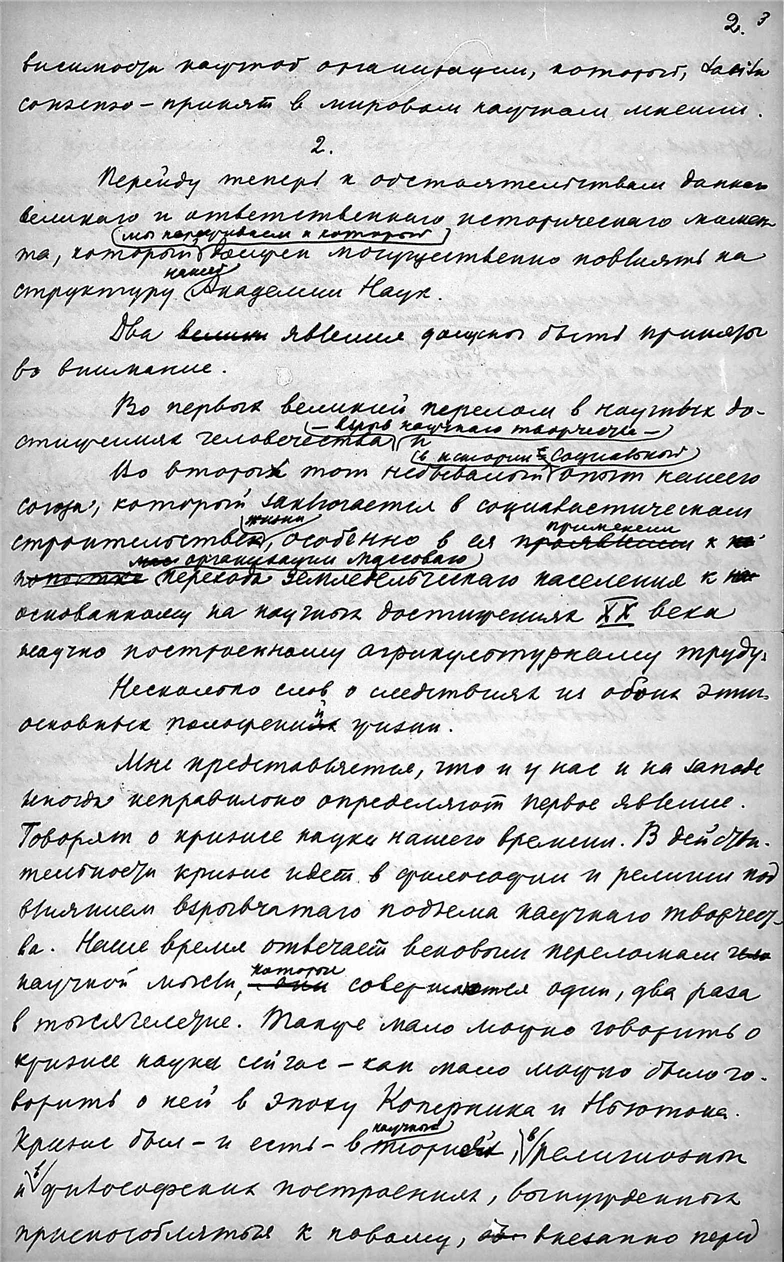 2. 3
висимости научной организации, который, tacito
consenso – принят в мировом научном мнении.
2.
Перейду теперь к обстоятельствам данного
великого и ответственного исторического момен-
мы переживаем и который
та, который должен могущественно повлиять на
нашей
структуру Академии Наук.
Два велики явления должны быть приняты
во внимание.
Во первых великий перелом в научных до-
– взрыв научного творчества –
стижениях человечества и
в истории социальный
Во вторых тот небывалый опыт нашего
союза, который заключается в социалистическом
жизни применении
строительстве, особенно в ея проявлении к
организации массового
попытке перехода земледельческаго населения к на
основанному на научных достижениях XX века
научно построенному агрикультурному труду.
Несколько слов о следствиях из обоих этих
основных положений жизни.
Мне представляется, что и у нас и на западе
иногда неправильно определяют первое явление.
Говорят о кризисе науки нашего времени. В действи-
тельности кризис идет в философии и религии под
влиянием взрывчатаго подъема научнаго творчест-
ва. Наше время отвечает вековым переломам
которые
научной мысли, они совершаются один, два раза
в тысячелетие. Также мало можно говорить о
кризисе науки сейчас – как мало можно было го-
ворить о ней в эпоху Коперника и Ньютона.
научной
Кризис был – и есть – в теорией, в религиозных
и в философских построениях, вынужденных
приспособляться к новому, внезапно перед